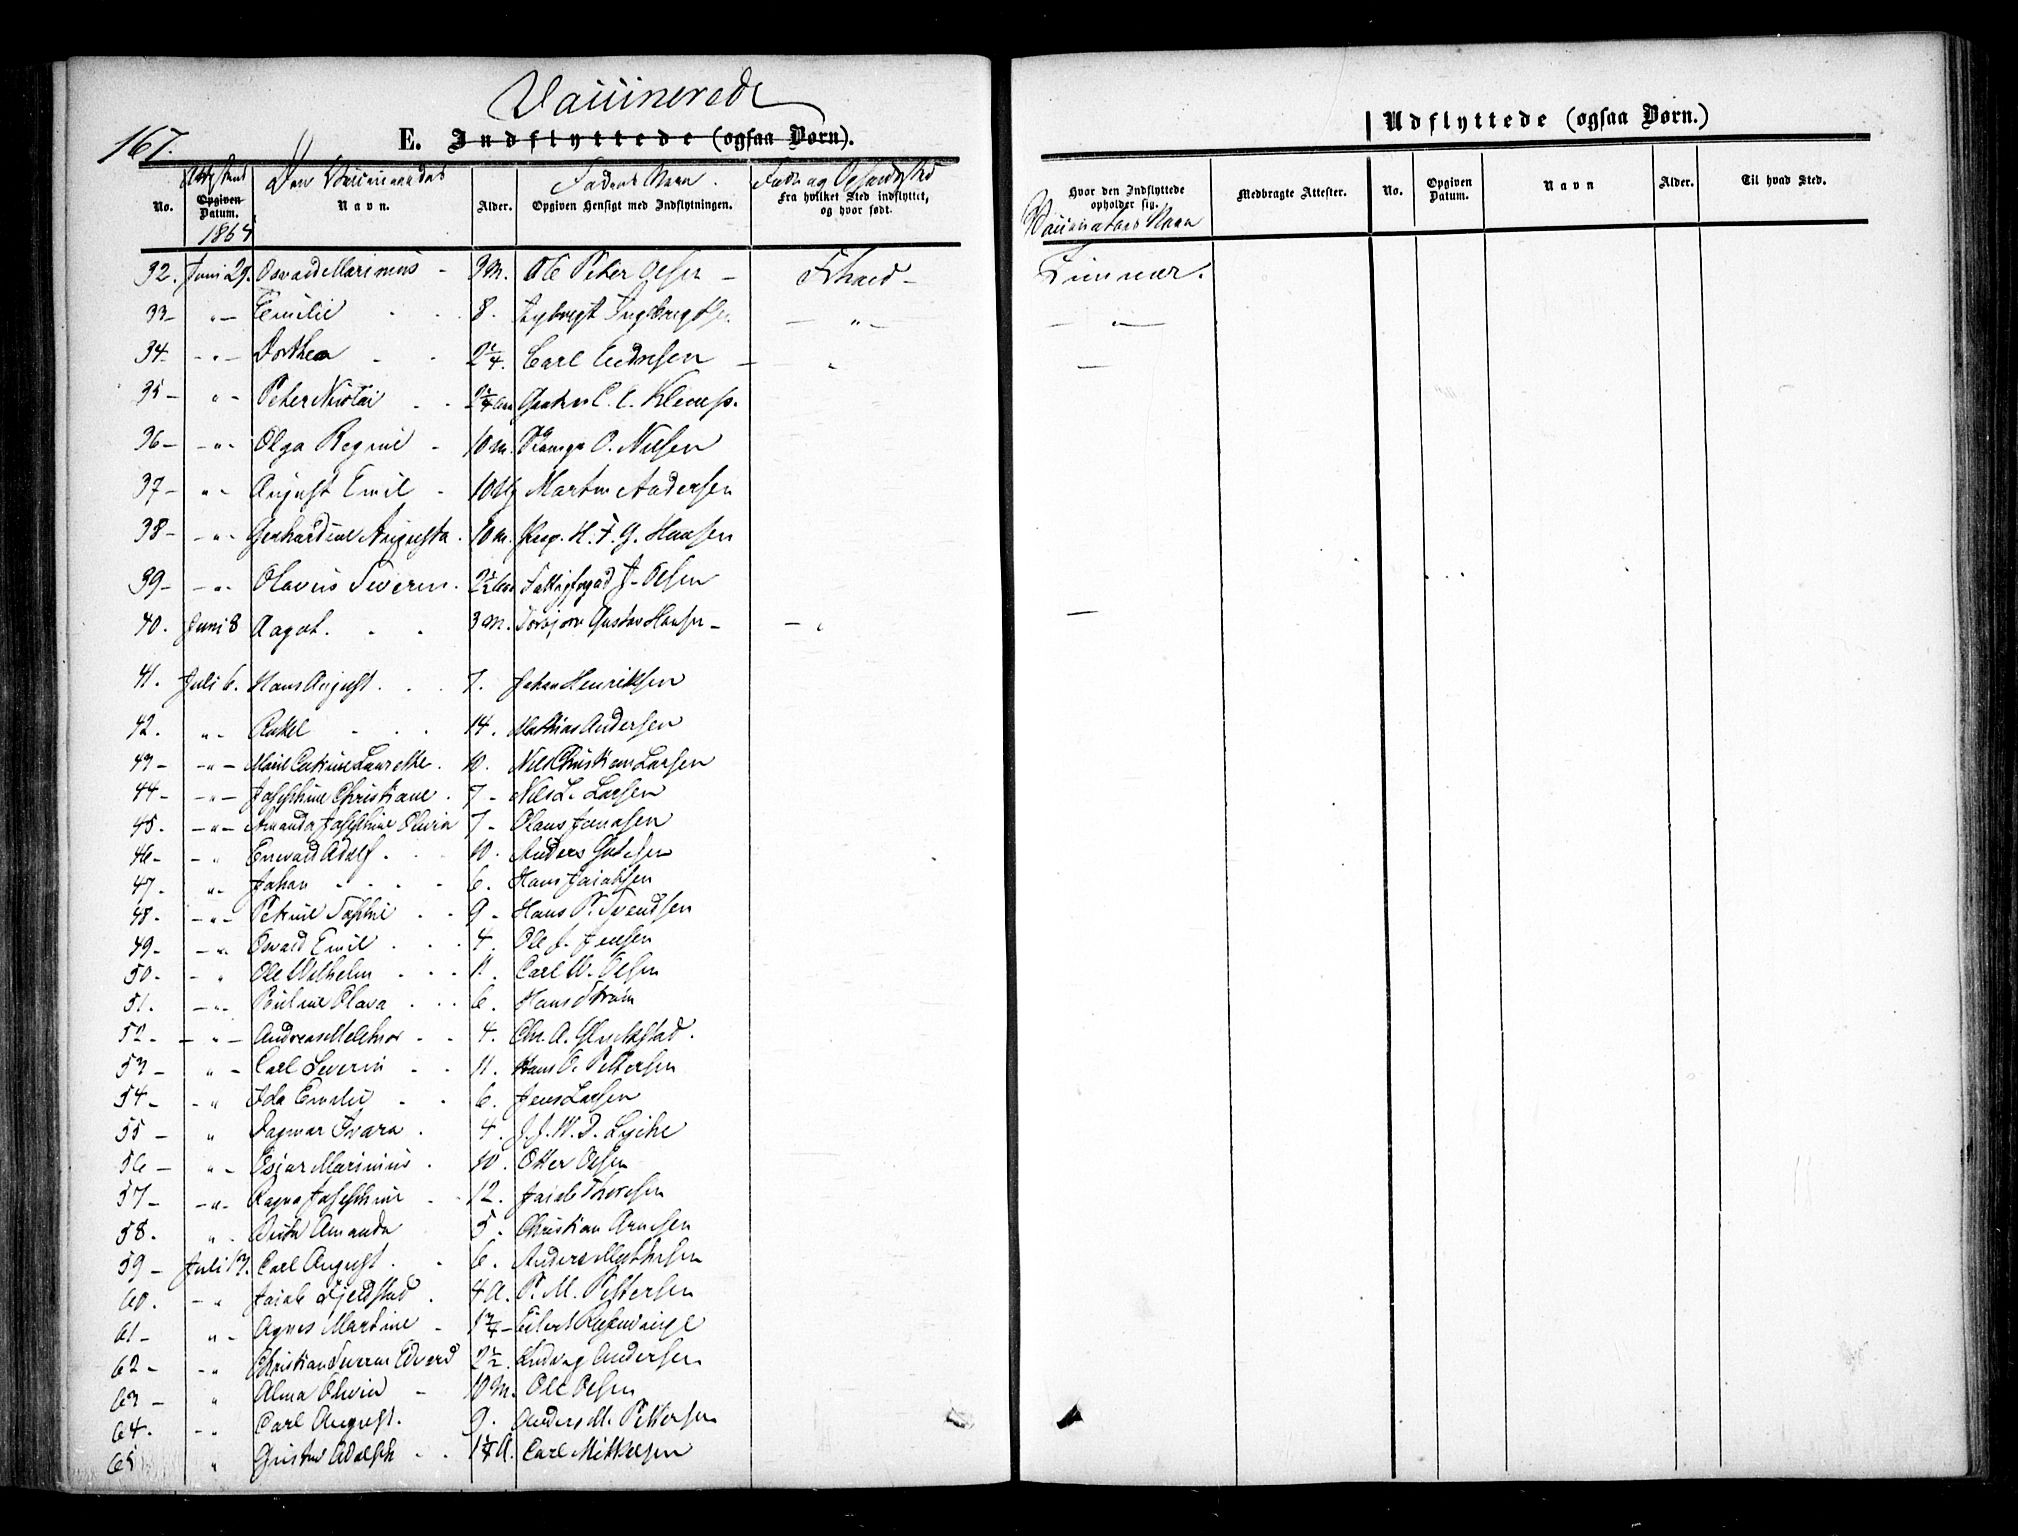 Vaccinerede
167.
E. Indflyttede (ogsaa Børn).
Udflyttede (ogsaa Børn.)
No.
Opgiven Datum. 1864
Den Vaccineredes Navn.
Alder.
Fadens Navn. Opgiven Hensigt med Indflytningen.
Føde og Fra hvilket Sted indflyttet, og hvor født.
Hvor den Indflyttede opholder sig. Vaccinatørs Navn
Medbragte Attester.
No.
Opgiven Datum.
Navn
Alder.
Til hvad Sted.
32. Juni 29. Osvald Marinus - 3 M. Ole Peter Olsen -
33 - " - Emilie 8. Ingebrigtsen - " - - " -
34 - " - Dorthea 2 1/4. Carl - " -
35 - " - Peter Nicolai 2 1/4 C. C.
36 - " - Olga Regine - 10 M. O. Nilsen
37 - " - August Emil - 10 M Martin Andersen
38 - " - Gerhardine Augusta. 10 M. H. F. G. Hansen
39 - " - Olavus Severin. 2 1/2 J. Olsen
40. Juni 8 Aagot. 3 M. Torbjørn Gustav Hansen - - " -
41. Juli 6. Hans August. 7. Johan Henriksen
42. " - Rakel 14. Mathias Andersen
43 - " - Marie Catrine Laurette. 10. Nils Christian Larsen
44 - " - Josephine Christiane. 7 - Nils L. Larsen
45. - " - Amanda Josephine Olivia 7 - Olaus Jonassen
46 - " Enevald Adolf. 10. Anders
47. " - Johan 6. Hans Jacobsen
48. - " - Petrine Sophie 9 - Hans P. Svendsen
49 - " Osvald Emil 4. Ole J. Jensen
50. - " Ole Wilhelm 11. Carl W. Olsen
51. - " - Pauline Olava 6. Hans Strøm
52 - - " - Andreas Melchior 4. Chr. A. Gluckstad.
53 - " - Carl Severin 11. Hans O. Pettersen
54 - " Ida Emilie 6. Jens Larsen
55 - " Dagmar Svara. 4. J. J. W. D. Lyche
56 - " - Marinius. 10. Otter Olsen
57 - " - Ragna Josephine 12. Jacob Thoresen
58. " . Amanda 5. Christian Arnesen
59 - Juli 13. Carl August. 6. Anders Mathisen
60. - " Jacob Fjeldstad. 4 A. P. M. Pettersen
61 - " - Agnes Martine - 1 3/4 - Eilert
62 - - " Christian Severin Edvard 2 1/2. Ludvig Andersen
63 - " Alma Olivia - 10 M. Ole Olsen
64. - " Carl August. 9. Anders M. Pettersen
65 " Gustav Adolph 1 1/4 A. Carl Mikkelsen